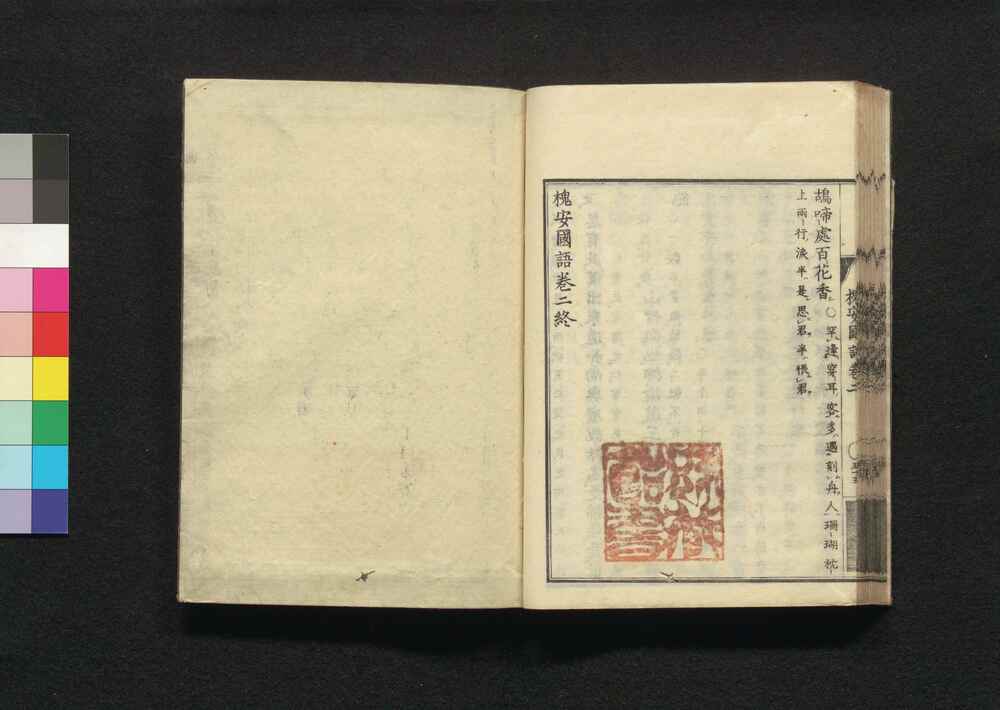 鴣啼處百花香○罕逢穿耳客多遇刻舟人珊瑚枕
上兩行淚半是思君半恨君
槐安國語卷二終
槐安國語卷二